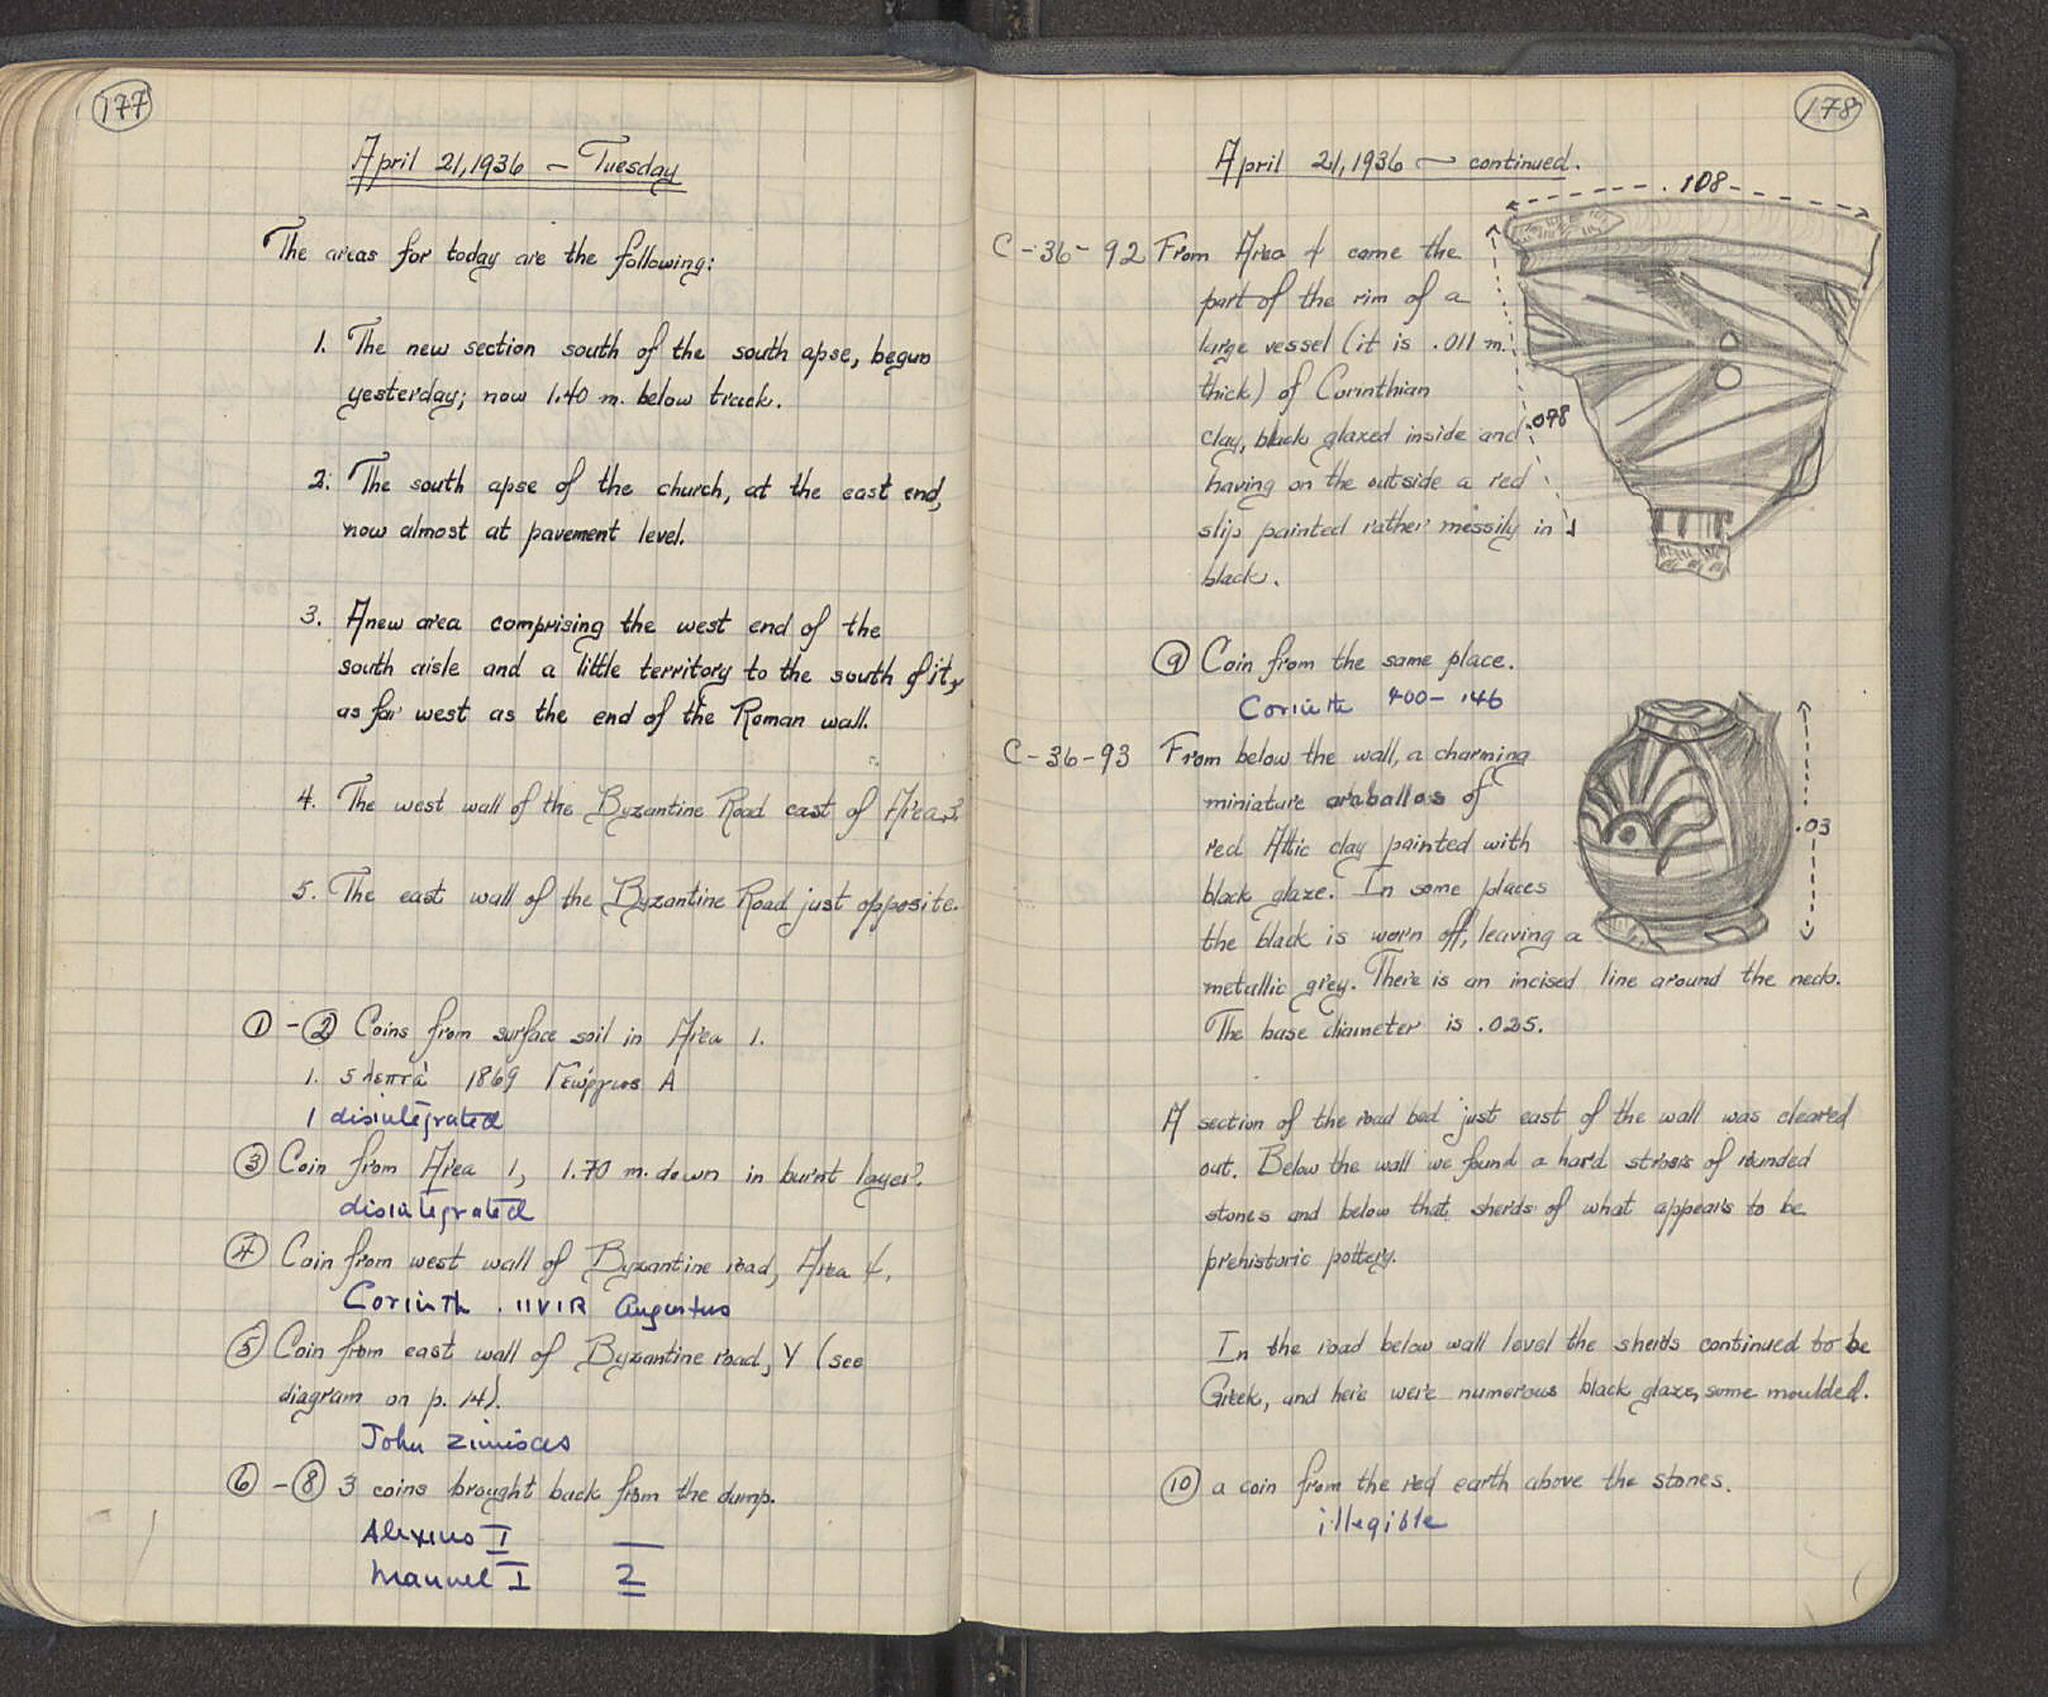 177
April 21, 1936 – Tuesday
The areas for today are the following:
1. The new section south of the south apse, begun
yesterday; now 1.40 m. below track.
2. The south apse of the church, at the east end,
now almost at pavement level.
3. A new area comprising the west end of the
south aisle and a little territory to the south of it,
as far west as the end of the Roman wall.
4. The west wall of the Byzantine Road east of Area 3.
5. The east wall of the Byzantine Road just opposite.
① – ② Coins from surface soil in Area 1.
1. 5 λεπτά 1869 Γεώργιος Α
1 disintegrated
③ Coin from Area 1, 1.70 m. down in burnt layer.
disintegrated
④ Coin from west wall of Byzantine road, Area 4.
Corinth . IIVIR Augustus
⑤ Coin from east wall of Byzantine road, Y (see
diagram on p. 14).
John Zimisces
⑥ – ⑧ 3 coins brought back from the dump.
Alexius I —
Manuel I 2
178
April 21, 1936 – continued.
.108
C-36-92 From Area 4 came the
part of the rim of a
large vessel (it is .011 m.
thick) of Corinthian
clay, black glazed inside and
.078
having on the outside a red
slip painted rather messily in
black.
⑨ Coin from the same place.
Corinth 400–146
C-36-93 From below the wall, a charming
miniature araballos of
.03
red Attic clay painted with
black glaze. In some places
the black is worn off, leaving a
metallic grey. There is an incised line around the neck.
The base diameter is .025.
A section of the road bed just east of the wall was cleared
out. Below the wall we found a hard strosis of rounded
stones and below that sherds of what appears to be
prehistoric pottery.
In the road below wall level the sherds continued to be
Greek, and here were numerous black glaze, some moulded.
⑩ a coin from the red earth above the stones.
illegible